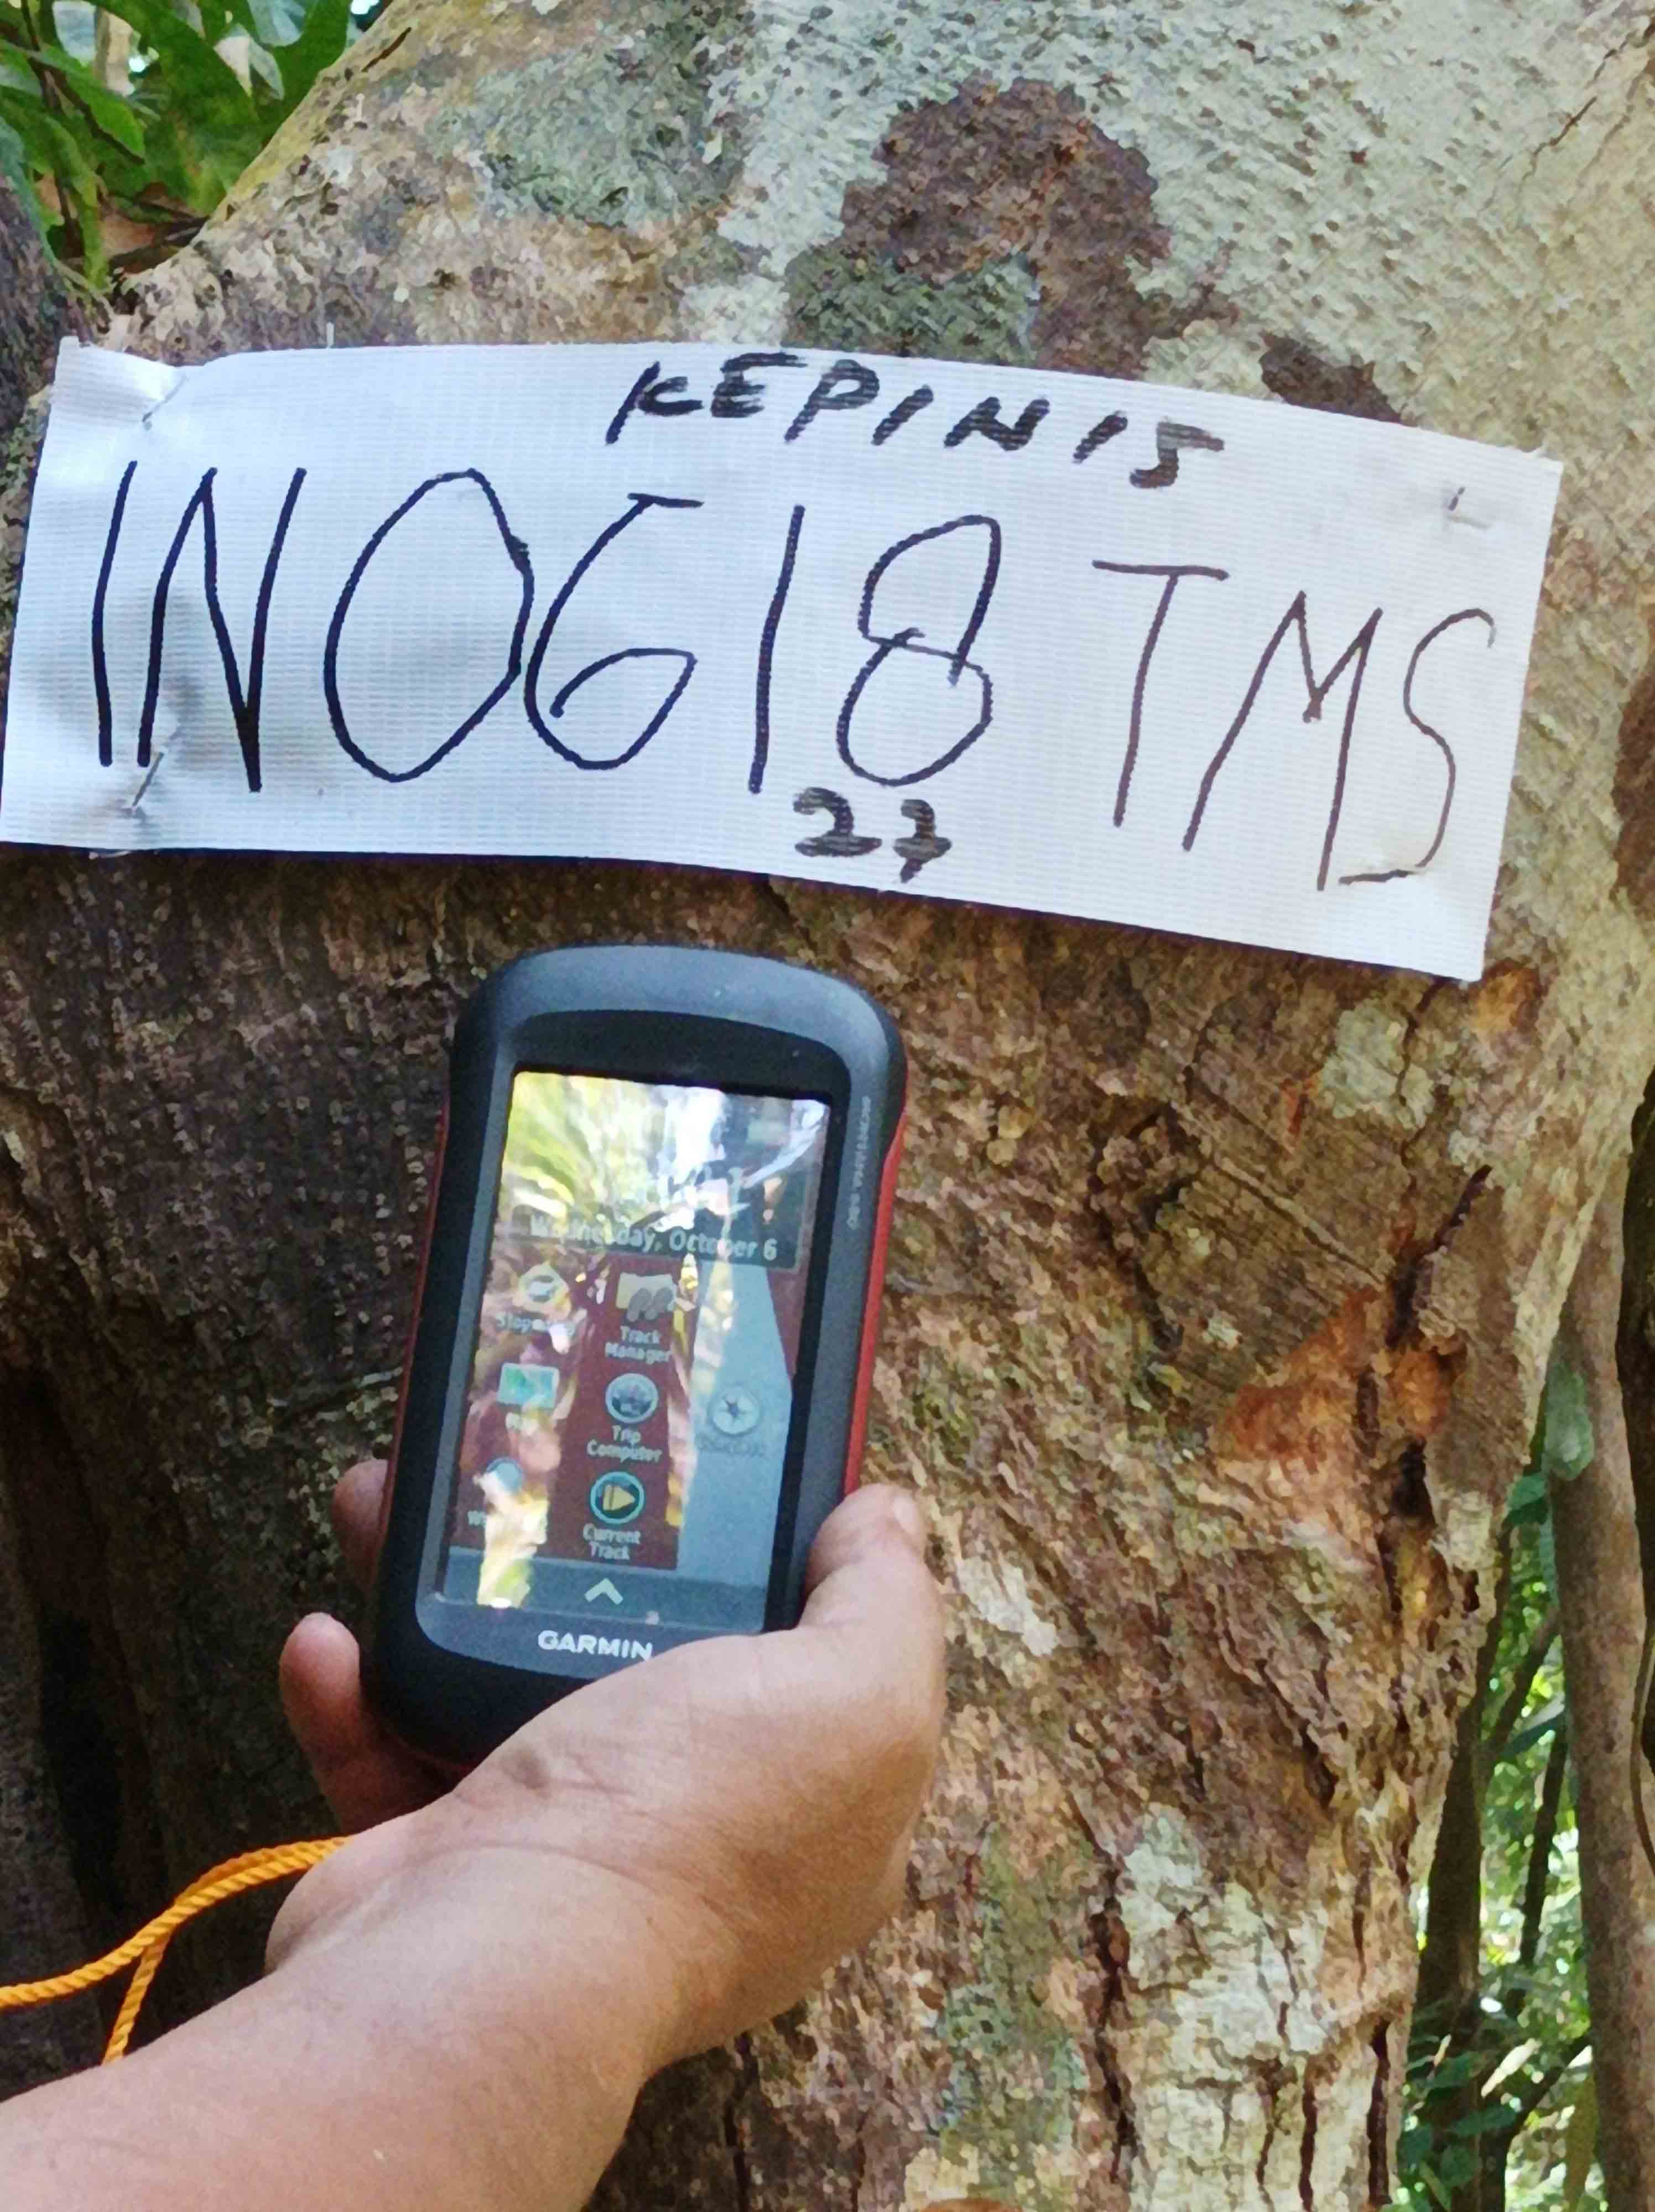 KEPINIS
INO618 TMS
27
Wednesday, October 6
Track
Manager
Trip
Computer
Current
Track
GARMIN